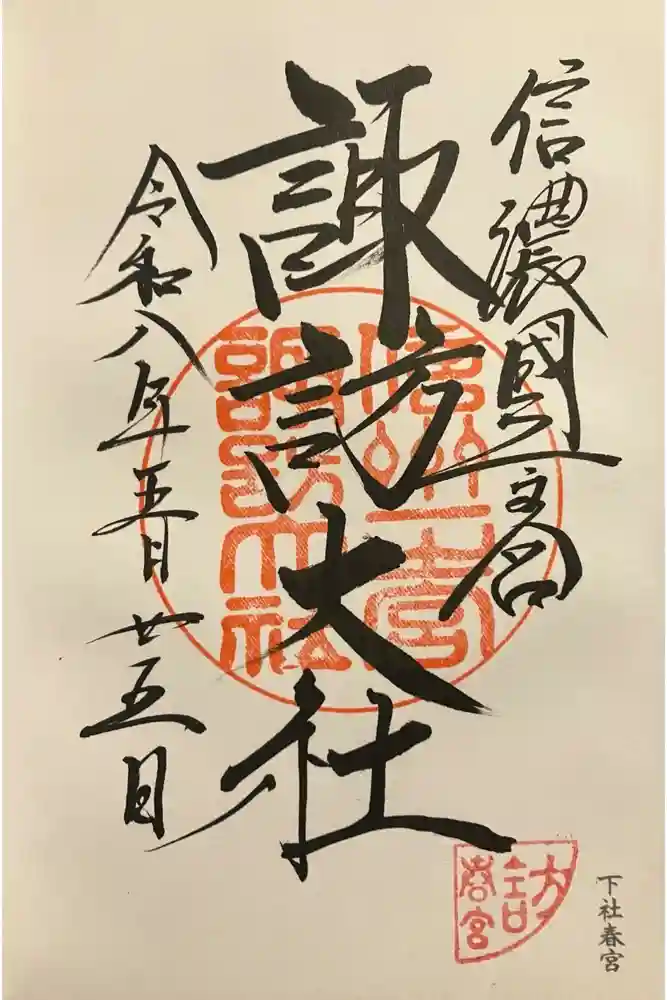 信濃國一之宮
諏訪大社
令和八年五月廿五日
信州一宮
諏訪大社
訪
春宮
下社春宮